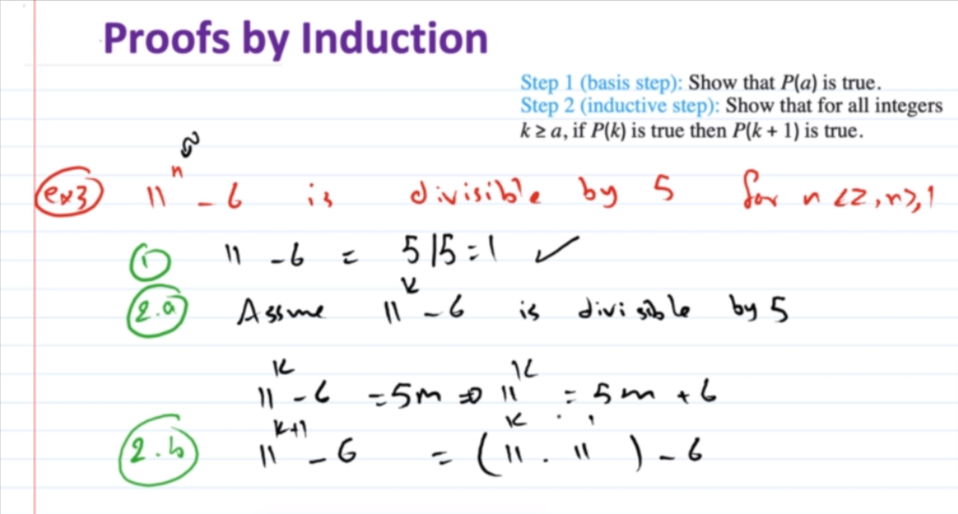 Proofs by Induction
Step 1 (basis step): Show that P(a) is true.
Step 2 (inductive step): Show that for all integers
k ≥ a, if P(k) is true then P(k + 1) is true.
ex3 11ⁿ - 6 is divisible by 5 for n ∠ Z, n ≥, 1
① 11 - 6 = 5 | 5 = 1 ✓
2.a Assume 11ᵏ - 6 is divisible by 5
11ᵏ - 6 = 5m ⇒ 11ᵏ = 5m + 6
2.b 11ᵏ⁺¹ - 6 = (11ᵏ . 11¹) - 6